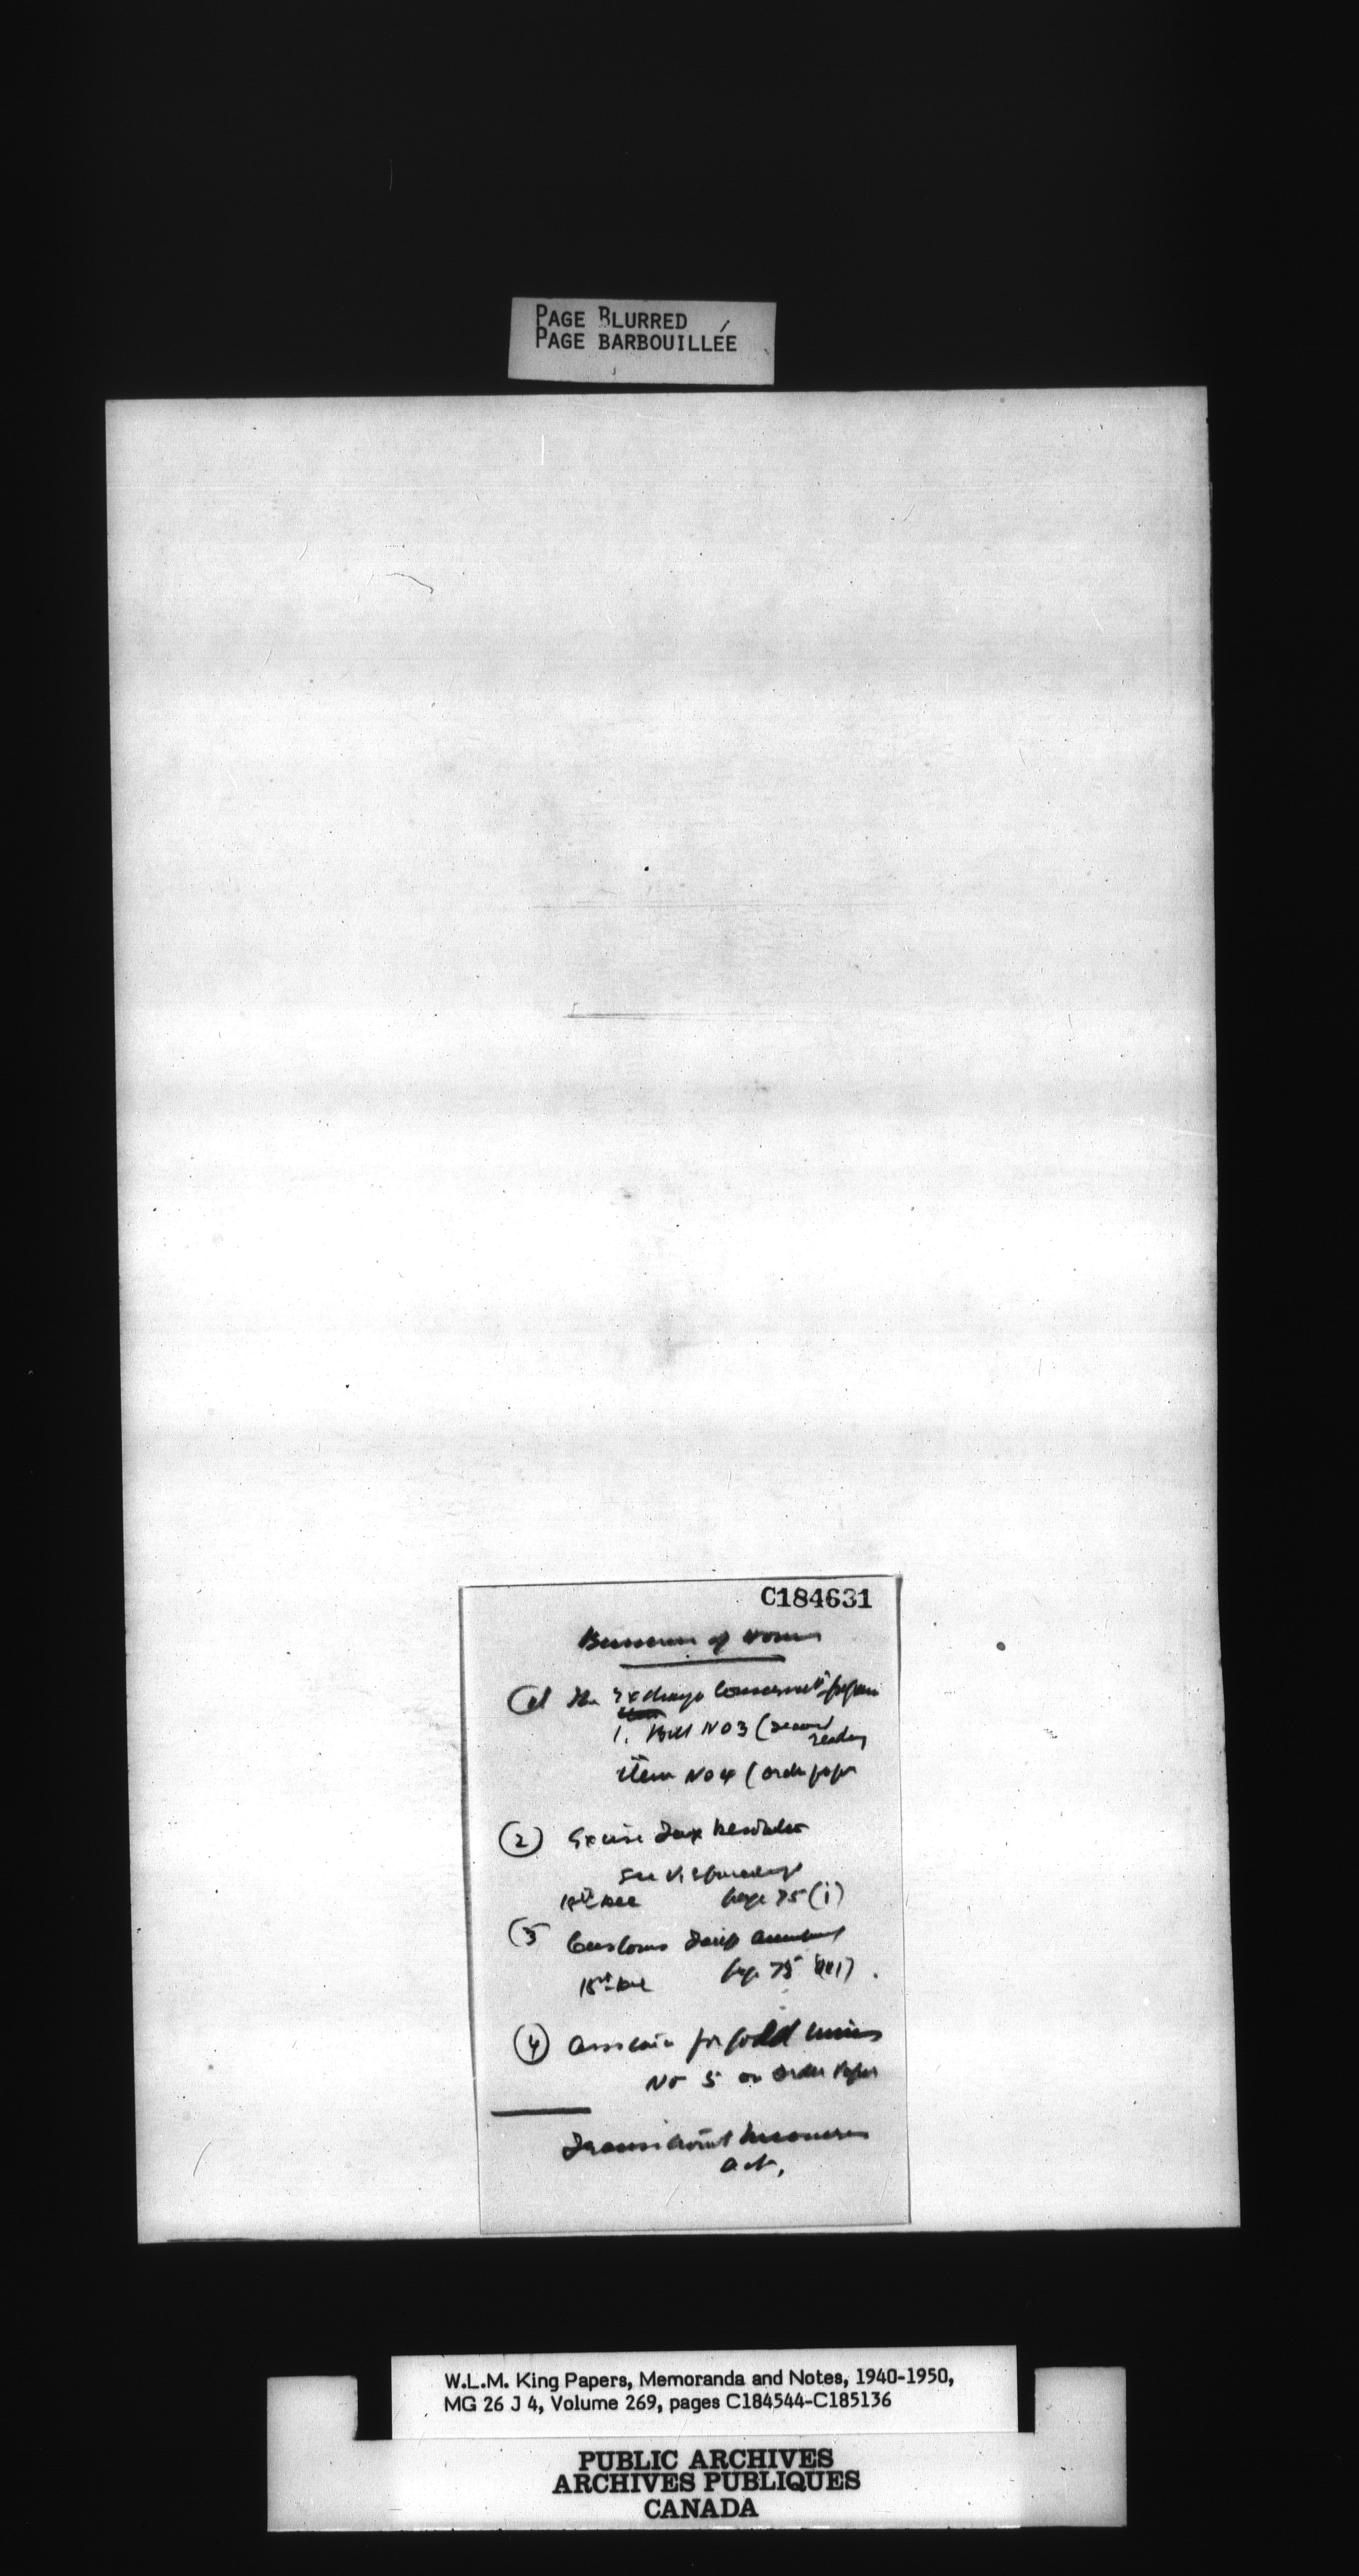 PAGE BLURRED
PAGE BARBOUILLÉE
C184631
Business of House
(1) The Exchange Conservation
1. Bill No 3 (second
reading
item No 4 (order paper
(2) Excise Tax Resolution
See
18th Dec page 75 (i)
(3 Customs Tariff amendment
18th Dec page 75
(4) Assistance for gold mines
No 5 on order Paper
Transitional Measures
act.
W.L.M. King Papers, Memoranda and Notes, 1940-1950,
MG 26 J 4, Volume 269, pages C184544-C185136
PUBLIC ARCHIVES
ARCHIVES PUBLIQUES
CANADA